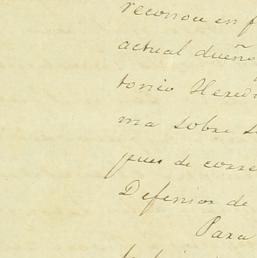 reconoce en f
actual dueño
tonio Hered
ma sobre s
pues de corre
Defensor de
Para